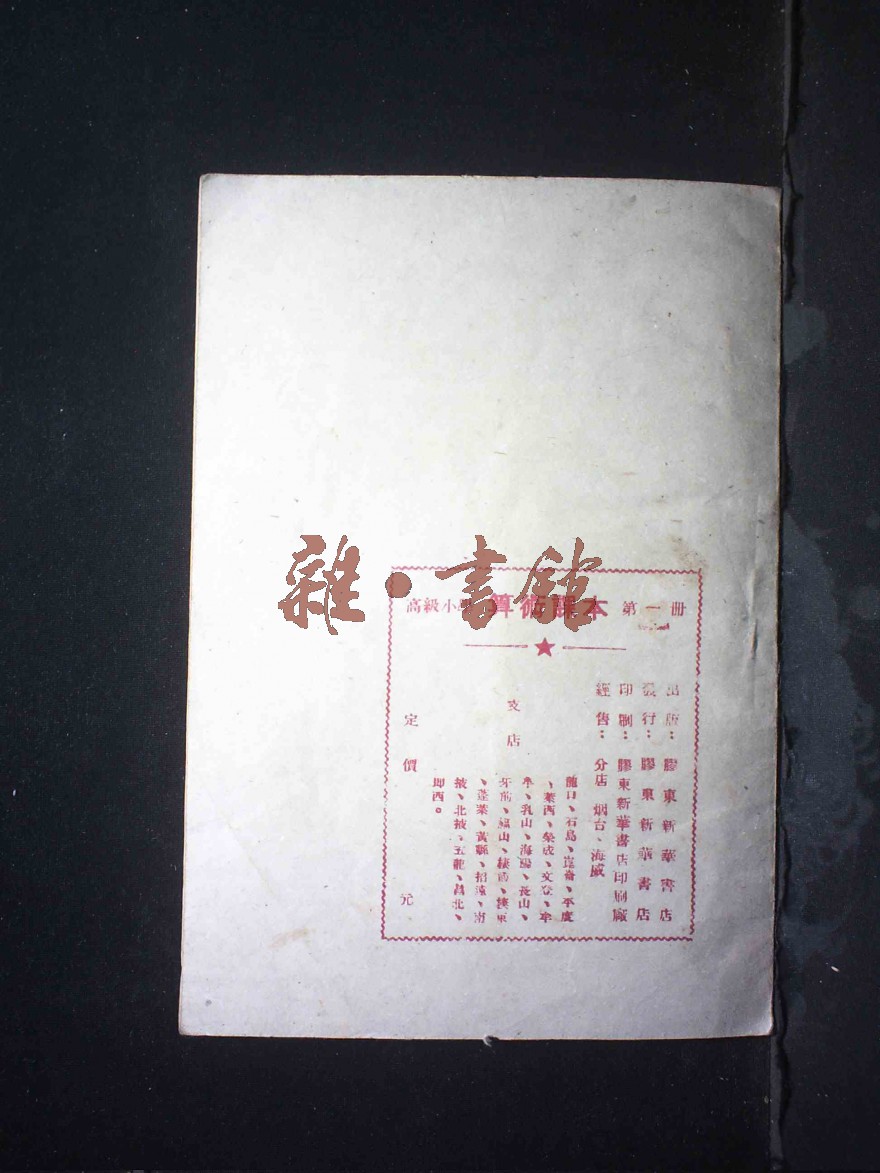 雜·書館
高級小學 算術課本 第一册
出版：膠東新華書店
發行：膠東新華書店
印刷：膠東新華書店印刷廠
經售：分店 烟台、海威
龍口、石島、崑嵛、平度
、萊西、榮成、文登、牟
平、乳山、海陽、長山、
牙前、福山、棲霞、棲東
、蓬萊、黃縣、招遠、南
掖、北掖、五龍、昌北、
即西。
支店
定價 元